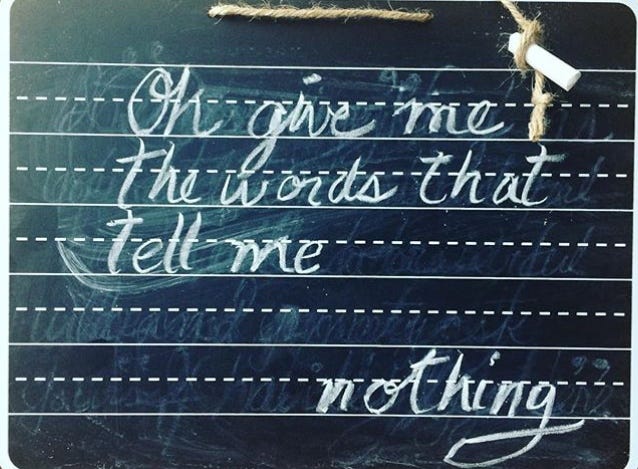 Oh give me
the words that
tell me
nothing